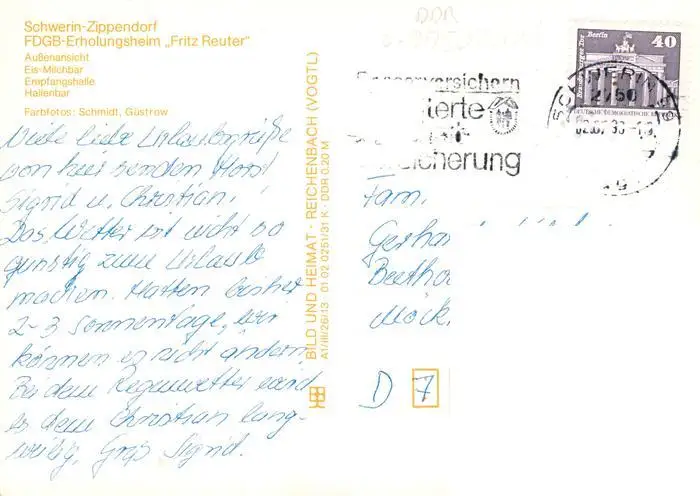 Schwerin-Zippendorf
FDGB-Erholungsheim „Fritz Reuter"
Außenansicht
Eis-Milchbar
Empfangshalle
Hallenbar
Farbfotos: Schmidt, Güstrow
Viele liebe Urlaubsgrüße
von hier senden Horst
Sigrid u. Christian.
Das Wetter ist nicht so
günstig zum Urlaub
machen. Hatten bisher
2-3 Sonnentage, wir
können es nicht ändern.
Bei dem Regenwetter wird
es dem Christian lang-
weilig, Gruß Sigrid.
BILD UND HEIMAT · REICHENBACH (VOGTL)
A1/III/26/13 01 02 0251/31 K · DDR 0,20 M
DDR
Berlin
Brandenburger Tor
40
DEUTSCHE DEMOKRATISCHE
SCHWERIN
2750
versichern
ierte
sicherung
Fam.
Gerha
Beetho
Möck
D 7